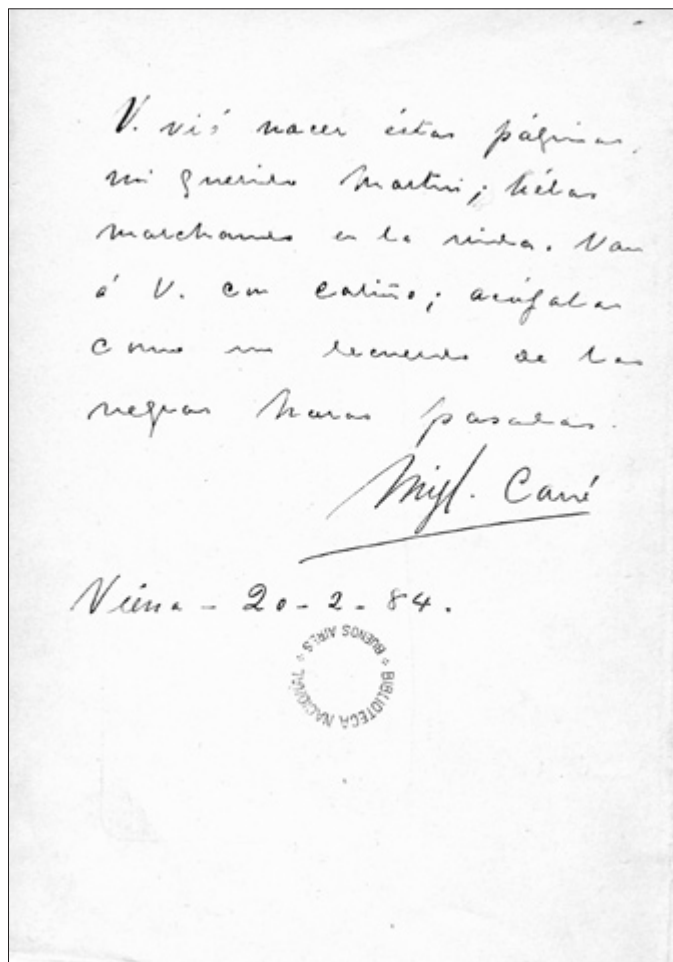 V. vió nacer éstas páginas,
mi querido Martin; hélas
marchando en la vida. Van
á V. con cariño; acójalas
como un recuerdo de las
negras horas pasadas.
Migl. Cané
Viena - 20-2-84.
BIBLIOTECA NACIONAL
BUENOS AIRES